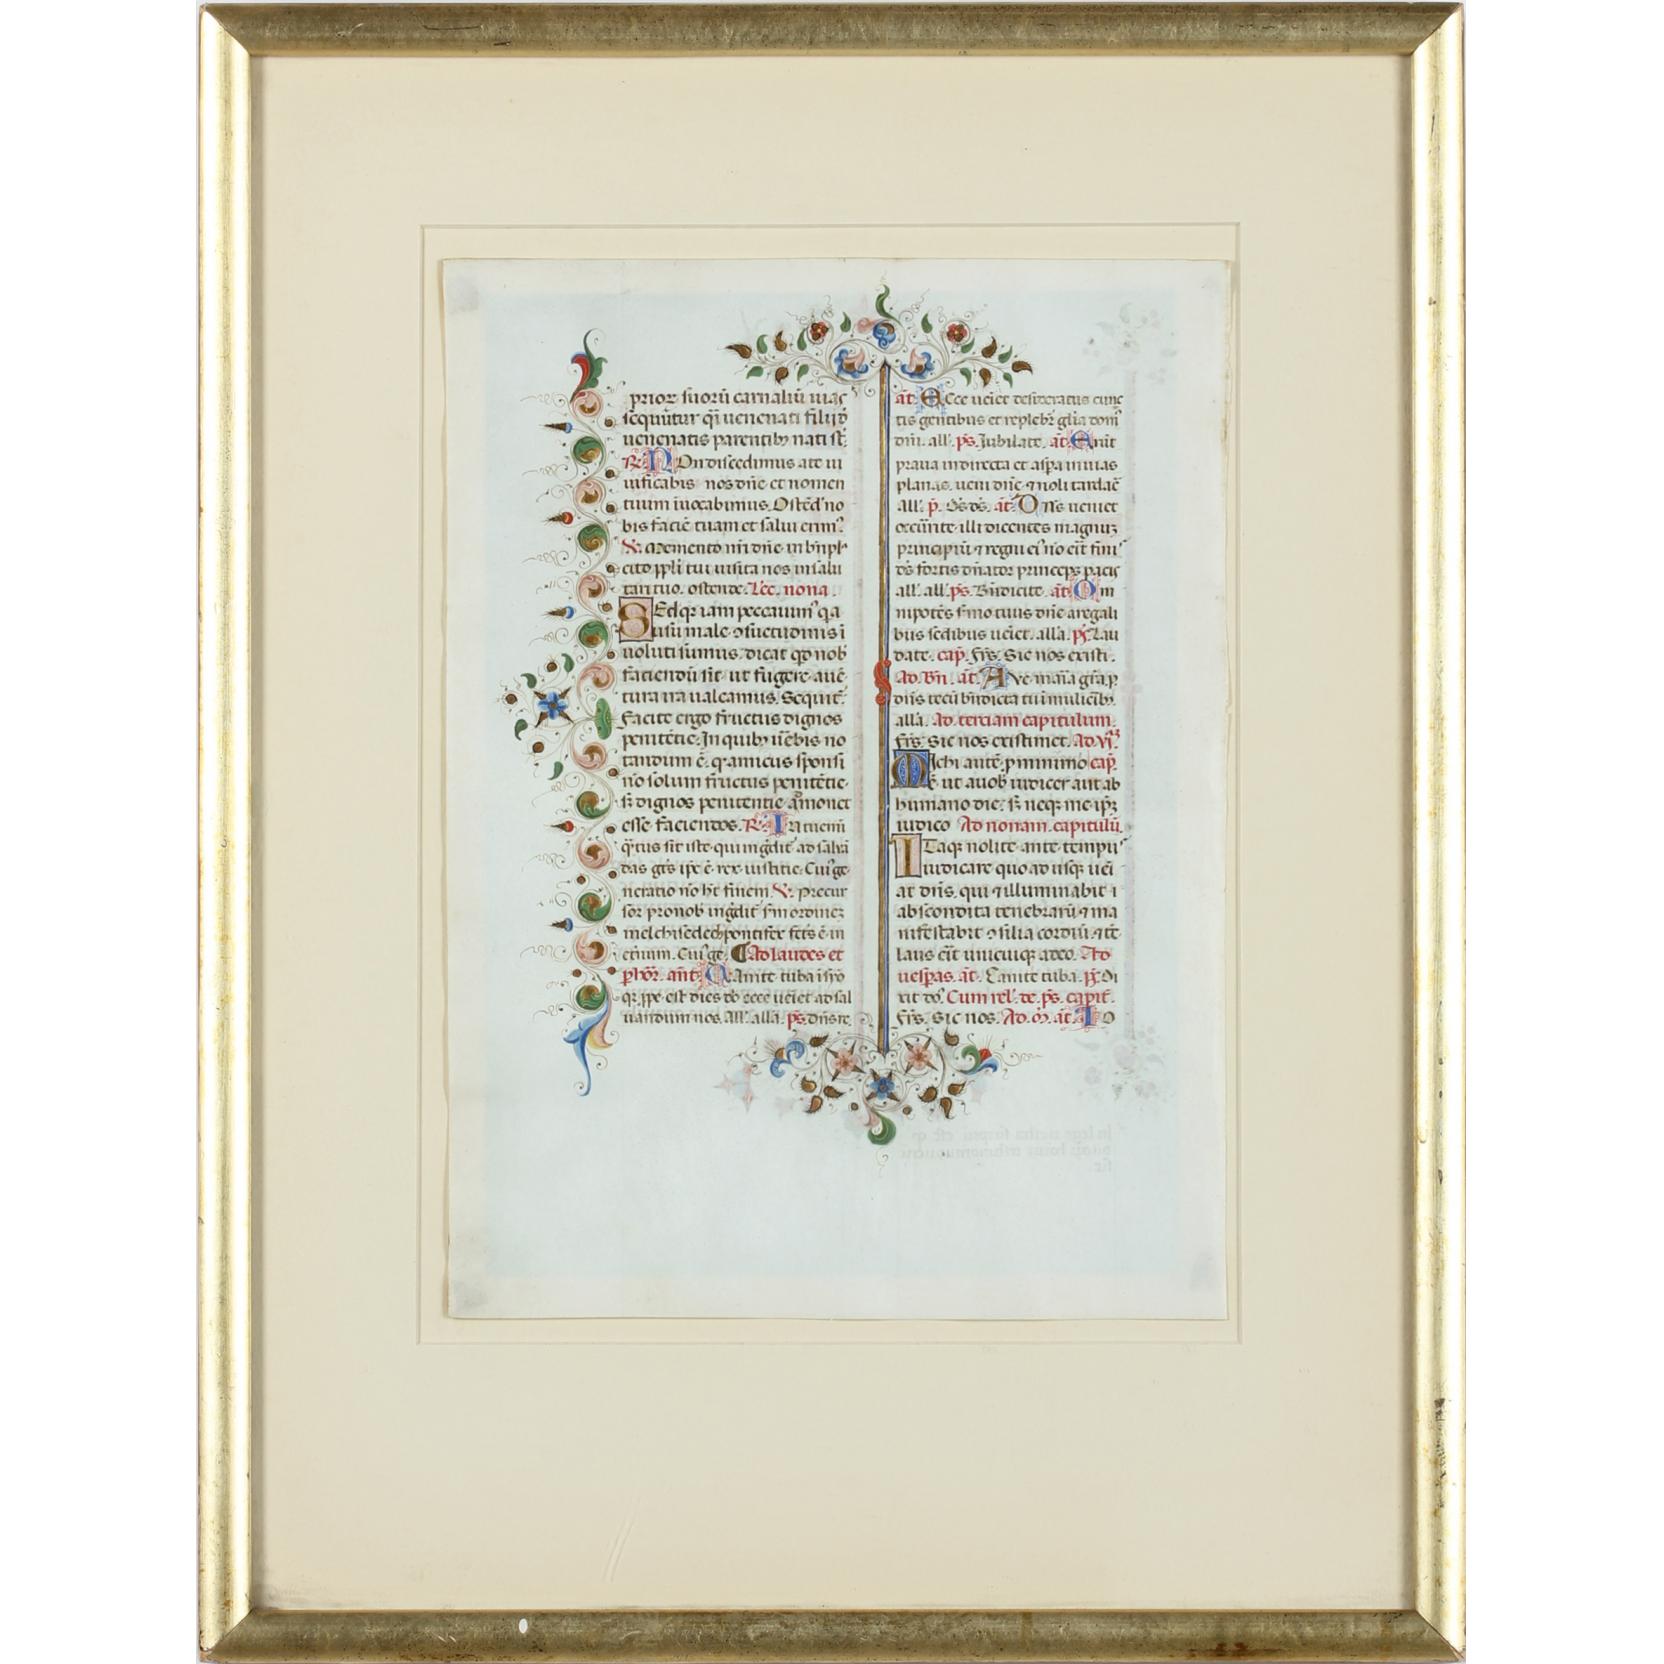 prior suorū carnaliū uias
sequūtur qr̄ uenenati filij d̄
uenenatis parentibȝ nati st̄.
R̄. NOn discedimus a te ui
uificabis nos dn̄e et nomen
tuum īuocabimus. Ostēd' no
bis faciē tuam et salui erimꝰ
℣. Memento nr̄i dn̄e in bn̄pl'
cito ppl̄i tui uisita nos in salu
tari tuo. ostende. Lēc. nona.
SEd qr iam peccauimꝰ q̄ a
usu male ꝯsuetudinis ī
uoluti sumus. dicat qd nob
faciendū sit ut fugere a uē
tura ira ualeamus. Sequit̄
Facite ergo fructus dignos
penitētie. In quibȝ ūbis no
tandum ē. qr amicus sponsi
nō solum fructus penitētie
sȝ dignos penitentie amonet
esse faciendos. R̄. Intuemī
q̄tus sit iste qui ingdit' ad saluā
das gtēs ipe ē rex iustitie. Cuiꝰ ge
neratio nō ht finem ℣. Precur
sor pro nob ingdit' sm ordinēȝ
melchisedech pontifex fcts ē in
etnum. Cuiꝰ ge. Ad laudes et
p hor. ant. CAnite tuba ī syo
qr ppe est dies dn̄ ecce ueiet ad sal
uandum nos. All'. alla. ps. Dn̄s re.
at. ECce ueiet desideratus cunc
tis gentibus et replebr̄ glia domꝰ
dn̄i. all'. ps. Jubilate. at. Erūt
praua in directa et aspa in uias
planas. ueni dn̄e ⁊ noli tardae
all'. p. Ds ds. at. Dn̄s ueniet
occurrite illi dicentes magnuȝ
principiū ⁊ regni eiꝰ nō erit finiꝰ
ds fortis dn̄ator princeps pacis
all'. all'. ps. Bn̄dicite. at. Om
nipotēs smo tuus dn̄e a regali
bus sedibus ueiet. alla. ps. Lau
date. cap. Frs. Sic nos existi.
Ad Bn̄. at. AVe maria gra p
dn̄s tecū bn̄dicta tu ī mulieribȝ
alla. Ad terciam capitulum.
Frs. Sic nos existimet. Ad vj.
MIchi autē. p minimo cap.
ē. ut a uob iudicer aut ab
humano die. sȝ neqȝ me ipȝ
iudico Ad nonam. capitulū.
ITaqȝ nolite ante tempus
iudicare quo ad usqȝ uei
at dn̄s. qui ⁊ illuminabit ī
abscondita tenebrarū ⁊ ma
nifestabit ꝯsilia cordiū ⁊ tē
laus erit unicuiqȝ a deo. Ad
uesperas. at. Canite tuba. ps. Di
xit ds. Cum rel. de ps. capit.
Frs. Sic nos. Ad m. at. IO